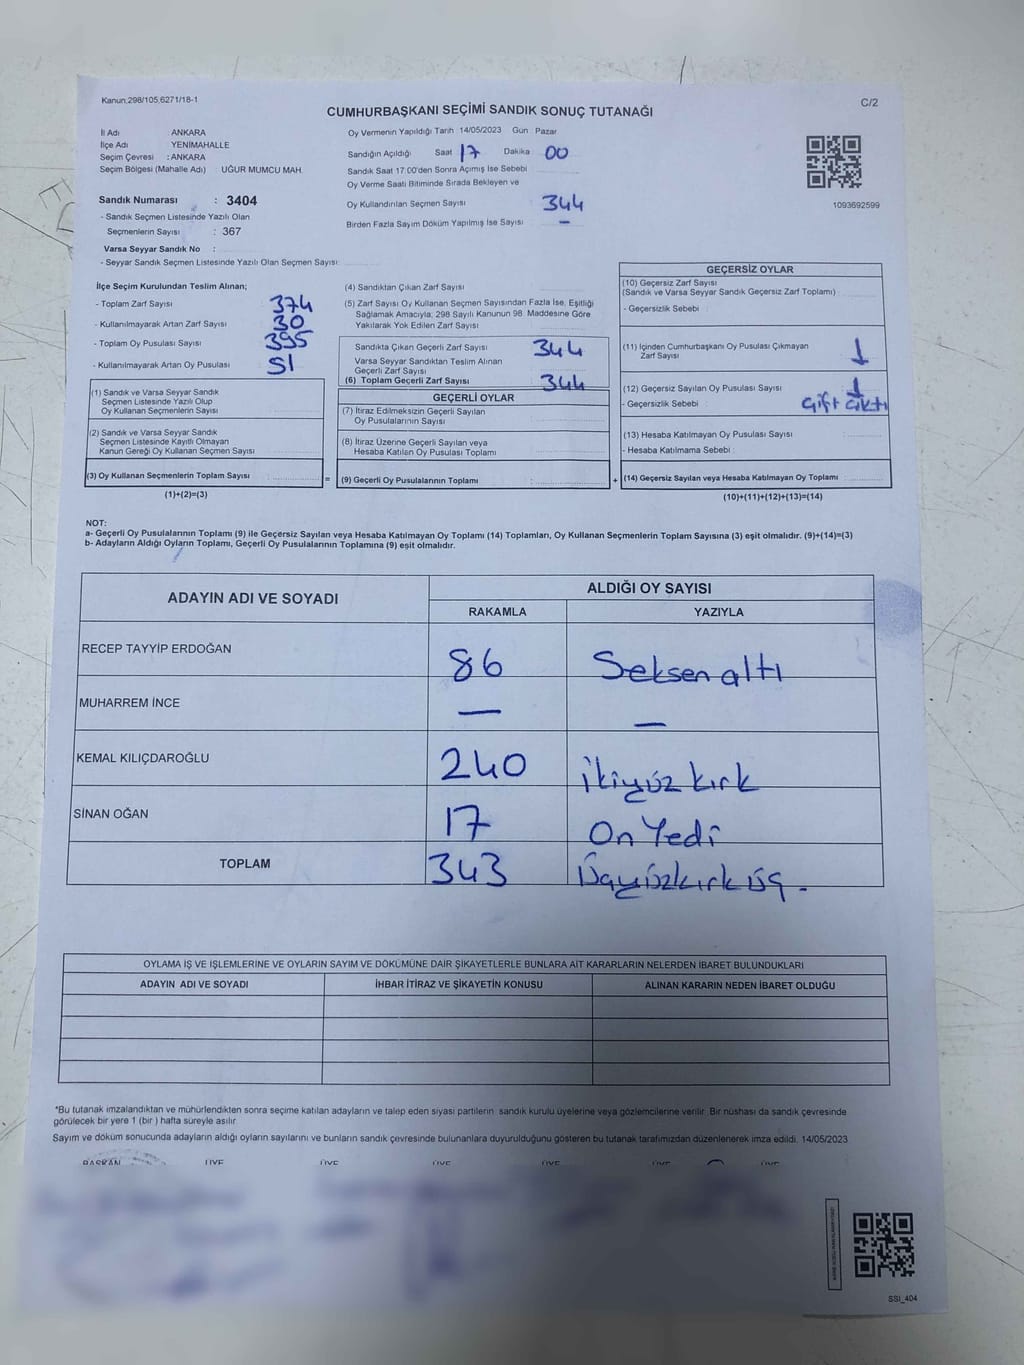 Kanun;298/105,6271/18-1
C/2
CUMHURBAŞKANI SEÇİMİ SANDIK SONUÇ TUTANAĞI
İl Adı ANKARA
İlçe Adı YENİMAHALLE
Seçim Çevresi : ANKARA
Seçim Bölgesi (Mahalle Adı) : UĞUR MUMCU MAH.
Sandık Numarası : 3404
- Sandık Seçmen Listesinde Yazılı Olan
Seçmenlerin Sayısı : 367
Varsa Seyyar Sandık No :
- Seyyar Sandık Seçmen Listesinde Yazılı Olan Seçmen Sayısı:
Oy Vermenin Yapıldığı Tarih 14/05/2023 Gün Pazar
Sandığın Açıldığı Saat 17 Dakika 00
Sandık Saat 17.00'den Sonra Açımış İse Sebebi
Oy Verme Saati Bitiminde Sırada Bekleyen ve
Oy Kullandırılan Seçmen Sayısı 344
Birden Fazla Sayım Döküm Yapılmış İse Sayısı –
1093692599
İlçe Seçim Kurulundan Teslim Alınan;
- Toplam Zarf Sayısı 374
- Kullanılmayarak Artan Zarf Sayısı 30
- Toplam Oy Pusulası Sayısı 395
- Kullanılmayarak Artan Oy Pusulası 51
(1) Sandık ve Varsa Seyyar Sandık
Seçmen Listesinde Yazılı Olup
Oy Kullanan Seçmenlerin Sayısı
(2) Sandık ve Varsa Seyyar Sandık
Seçmen Listesinde Kayıtlı Olmayan
Kanun Gereği Oy Kullanan Seçmen Sayısı
(3) Oy Kullanan Seçmenlerin Toplam Sayısı
(1)+(2)=(3)
(4) Sandıktan Çıkan Zarf Sayısı
(5) Zarf Sayısı Oy Kullanan Seçmen Sayısından Fazla İse, Eşitliği
Sağlamak Amacıyla; 298 Sayılı Kanunun 98. Maddesine Göre
Yakılarak Yok Edilen Zarf Sayısı
Sandıkta Çıkan Geçerli Zarf Sayısı 344
Varsa Seyyar Sandıktan Teslim Alınan
Geçerli Zarf Sayısı
(6) Toplam Geçerli Zarf Sayısı 344
GEÇERLİ OYLAR
(7) İtiraz Edilmeksizin Geçerli Sayılan
Oy Pusulalarının Sayısı
(8) İtiraz Üzerine Geçerli Sayılan veya
Hesaba Katılan Oy Pusulası Toplamı
=
(9) Geçerli Oy Pusulalarının Toplamı
+
GEÇERSİZ OYLAR
(10) Geçersiz Zarf Sayısı
(Sandık ve Varsa Seyyar Sandık Geçersiz Zarf Toplamı)
- Geçersizlik Sebebi :
(11) İçinden Cumhurbaşkanı Oy Pusulası Çıkmayan
Zarf Sayısı
(12) Geçersiz Sayılan Oy Pusulası Sayısı 1
- Geçersizlik Sebebi : Çift çıktı
(13) Hesaba Katılmayan Oy Pusulası Sayısı
- Hesaba Katılmama Sebebi :
(14) Geçersiz Sayılan veya Hesaba Katılmayan Oy Toplamı
(10)+(11)+(12)+(13)=(14)
NOT:
a- Geçerli Oy Pusulalarının Toplamı (9) ile Geçersiz Sayılan veya Hesaba Katılmayan Oy Toplamı (14) Toplamları, Oy Kullanan Seçmenlerin Toplam Sayısına (3) eşit olmalıdır. (9)+(14)=(3)
b- Adayların Aldığı Oyların Toplamı, Geçerli Oy Pusulalarının Toplamına (9) eşit olmalıdır.
ADAYIN ADI VE SOYADI
ALDIĞI OY SAYISI
RAKAMLA YAZIYLA
RECEP TAYYİP ERDOĞAN 86 Seksen altı
MUHARREM İNCE — —
KEMAL KILIÇDAROĞLU 240 ikiyüz kırk
SİNAN OĞAN 17 On Yedi
TOPLAM 343 Üçyüzkırküç.
OYLAMA İŞ VE İŞLEMLERİNE VE OYLARIN SAYIM VE DÖKÜMÜNE DAİR ŞİKAYETLERLE BUNLARA AİT KARARLARIN NELERDEN İBARET BULUNDUKLARI
ADAYIN ADI VE SOYADI İHBAR İTİRAZ VE ŞİKAYETİN KONUSU ALINAN KARARIN NEDEN İBARET OLDUĞU
*Bu tutanak imzalandıktan ve mühürlendikten sonra seçime katılan adayların ve talep eden siyası partilerin sandık kurulu üyelerine veya gözlemcilerine verilir. Bir nüshası da sandık çevresinde
görülecek bir yere 1 (bir) hafta süreyle asılır.
Sayım ve döküm sonucunda adayların aldığı oyların sayılarını ve bunların sandık çevresinde bulunanlara duyurulduğunu gösteren bu tutanak tarafımızdan düzenlenerek imza edildi. 14/05/2023
BAŞKAN ÜYE ÜYE ÜYE ÜYE ÜYE ÜYE
SSI_404